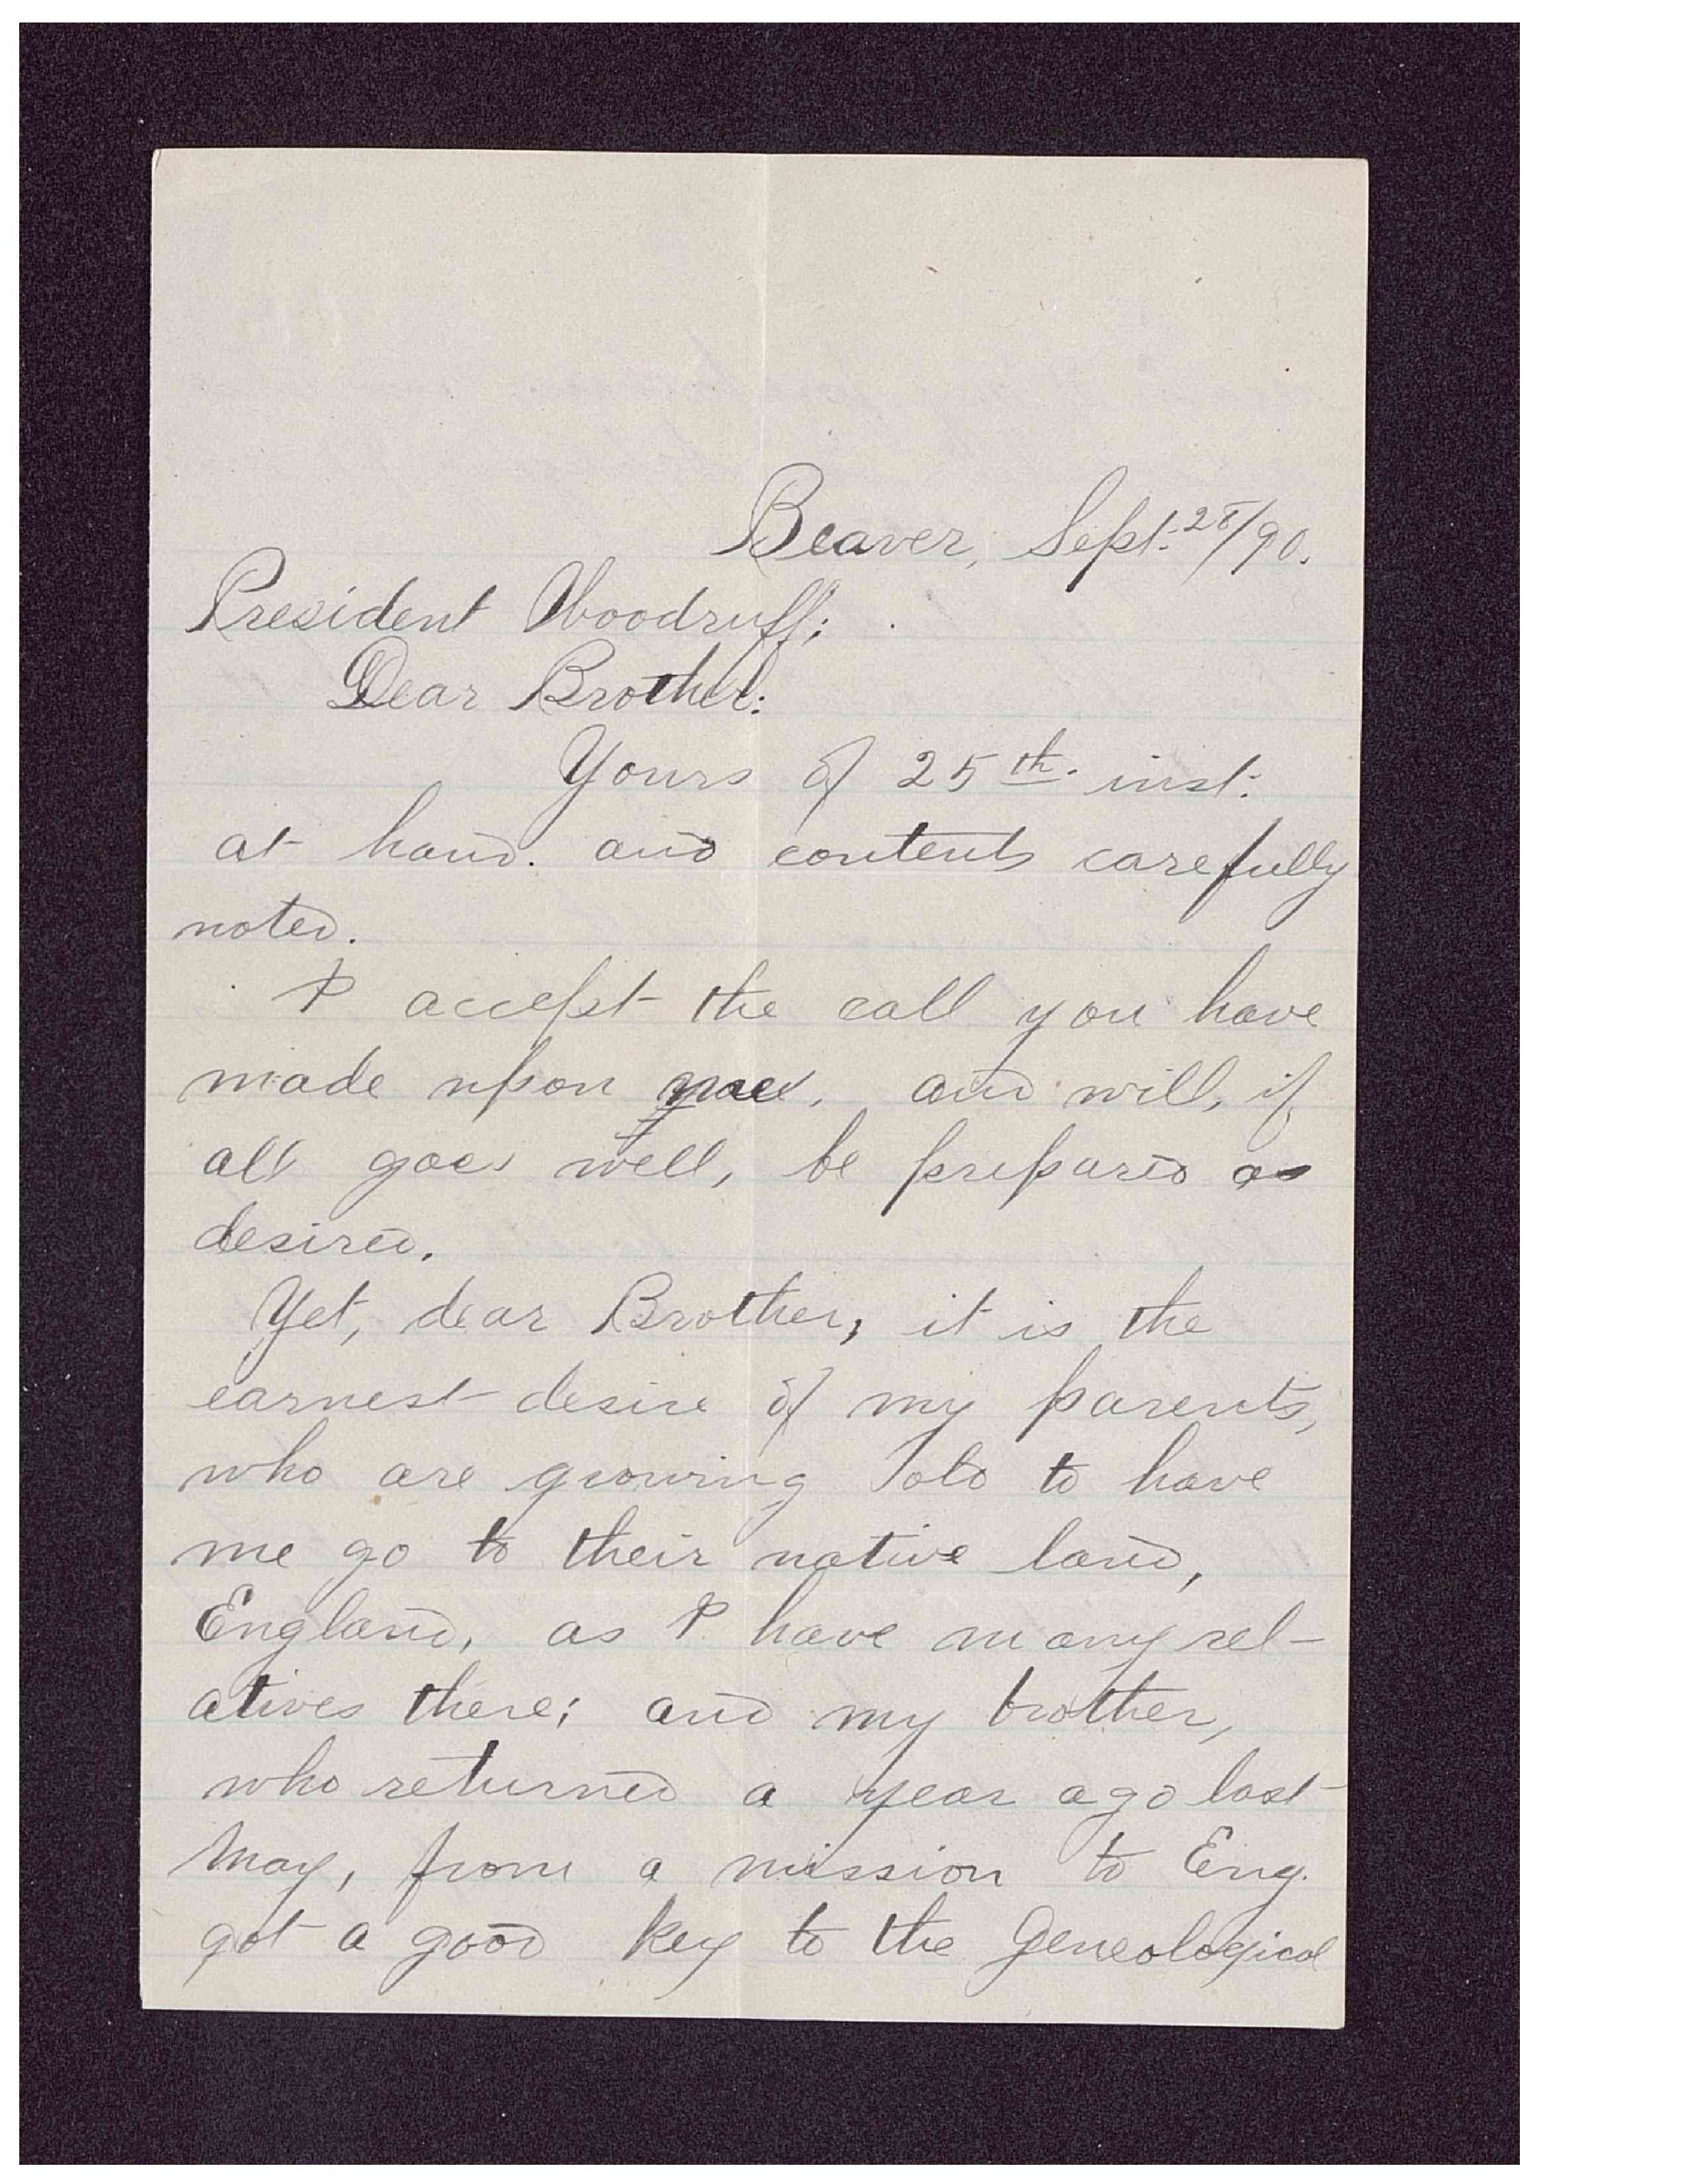 Beaver, Sept. 28/90.
President Woodruff;
Dear Brother:
Yours of 25th. inst.
at hand. and contents carefully
noted.
I accept the call you have
made upon me, and will, if
all goes well, be prepared as
desired.
Yet, dear Brother, it is the
earnest desire of my parents,
who are growing old to have
me go to their native land,
England, as I have many rel-
atives there; and my brother,
who returned a year ago last
May, from a mission to Eng.
got a good key to the Geneological